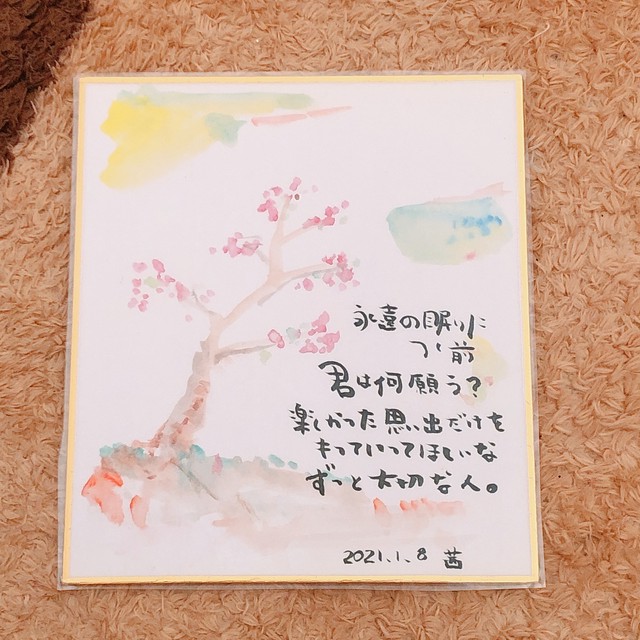 永遠の眠りに
つく前
君は何願う?
楽しかった思い出だけを
もっていってほしいな
ずっと大切な人。
2021.1.8 茜